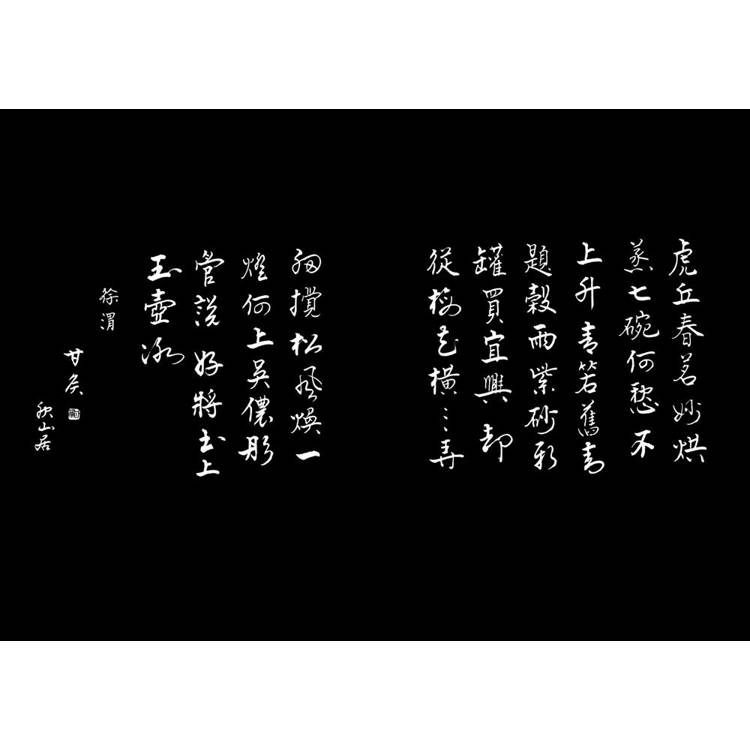 虎丘春茗妙烘
蒸七碗何愁不
上升青箬舊封
題穀雨紫砂新
罐買宜興却
從梅花橫三弄
細攪松風煥一
燈何上吳儂彤
管說好將書上
玉壺冰
徐渭
甘
秋山居